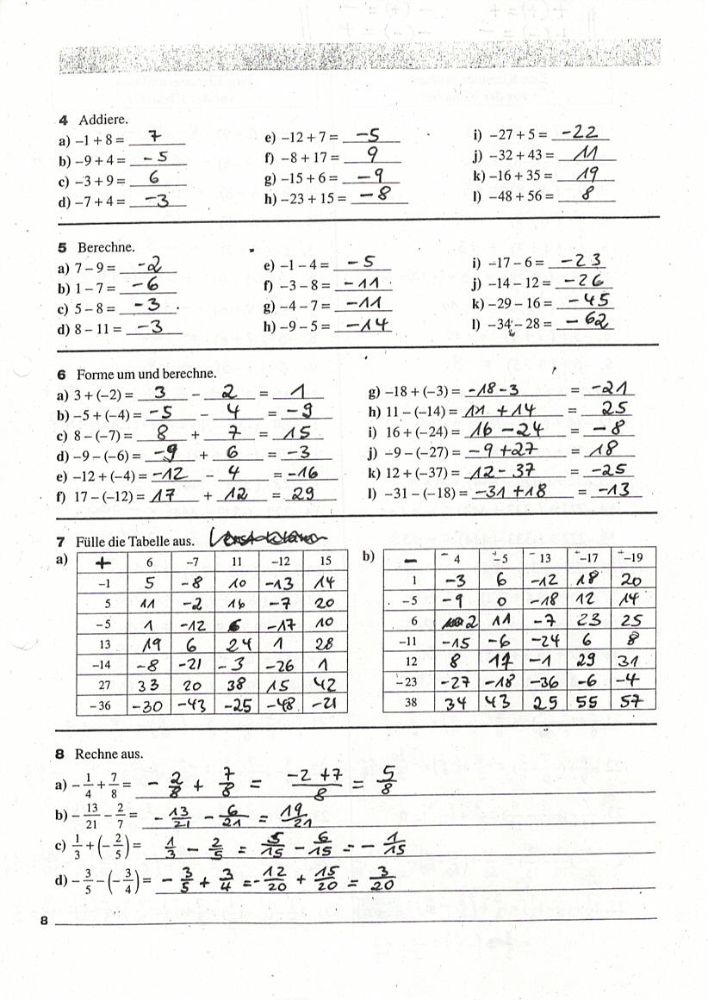 + (+) = +    − (+) = −
+ (−) = −    − (−) = +
4 Addiere.
a) −1 + 8 = 7    e) −12 + 7 = −5    i) −27 + 5 = −22
b) −9 + 4 = −5    f) −8 + 17 = 9    j) −32 + 43 = 11
c) −3 + 9 = 6    g) −15 + 6 = −9    k) −16 + 35 = 19
d) −7 + 4 = −3    h) −23 + 15 = −8    l) −48 + 56 = 8
5 Berechne.
a) 7 − 9 = −2    e) −1 − 4 = −5    i) −17 − 6 = −23
b) 1 − 7 = −6    f) −3 − 8 = −11    j) −14 − 12 = −26
c) 5 − 8 = −3    g) −4 − 7 = −11    k) −29 − 16 = −45
d) 8 − 11 = −3    h) −9 − 5 = −14    l) −34 − 28 = −62
6 Forme um und berechne.
a) 3 + (−2) = 3 − 2 = 1    g) −18 + (−3) = −18 − 3 = −21
b) −5 + (−4) = −5 − 4 = −9    h) 11 − (−14) = 11 + 14 = 25
c) 8 − (−7) = 8 + 7 = 15    i) 16 + (−24) = 16 − 24 = −8
d) −9 − (−6) = −9 + 6 = −3    j) −9 − (−27) = −9 + 27 = 18
e) −12 + (−4) = −12 − 4 = −16    k) 12 + (−37) = 12 − 37 = −25
f) 17 − (−12) = 17 + 12 = 29    l) −31 − (−18) = −31 + 18 = −13
7 Fülle die Tabelle aus.
a) + 6 −7 11 −12 15    b) − 4 −5 13 −17 −19
−1 5 −8 10 −13 14    1 −3 6 −12 18 20
5 11 −2 16 −7 20    −5 −9 0 −18 12 14
−5 1 −12 6 −17 10    6 2 11 −7 23 25
13 19 6 24 1 28    −11 −15 −6 −24 6 8
−14 −8 −21 −3 −26 1    12 8 17 −1 29 31
27 33 20 38 15 42    −23 −27 −18 −36 −6 −4
−36 −30 −43 −25 −48 −21    38 34 43 25 55 57
8 Rechne aus.
a) −1/4 + 7/8 = −2/8 + 7/8 = (−2 + 7)/8 = 5/8
b) −13/21 − 2/7 = −13/21 − 6/21 = 19/21
c) 1/3 + (−2/5) = 1/3 − 2/5 = 5/15 − 6/15 = −1/15
d) −3/5 − (−3/4) = −3/5 + 3/4 = −12/20 + 15/20 = 3/20
8